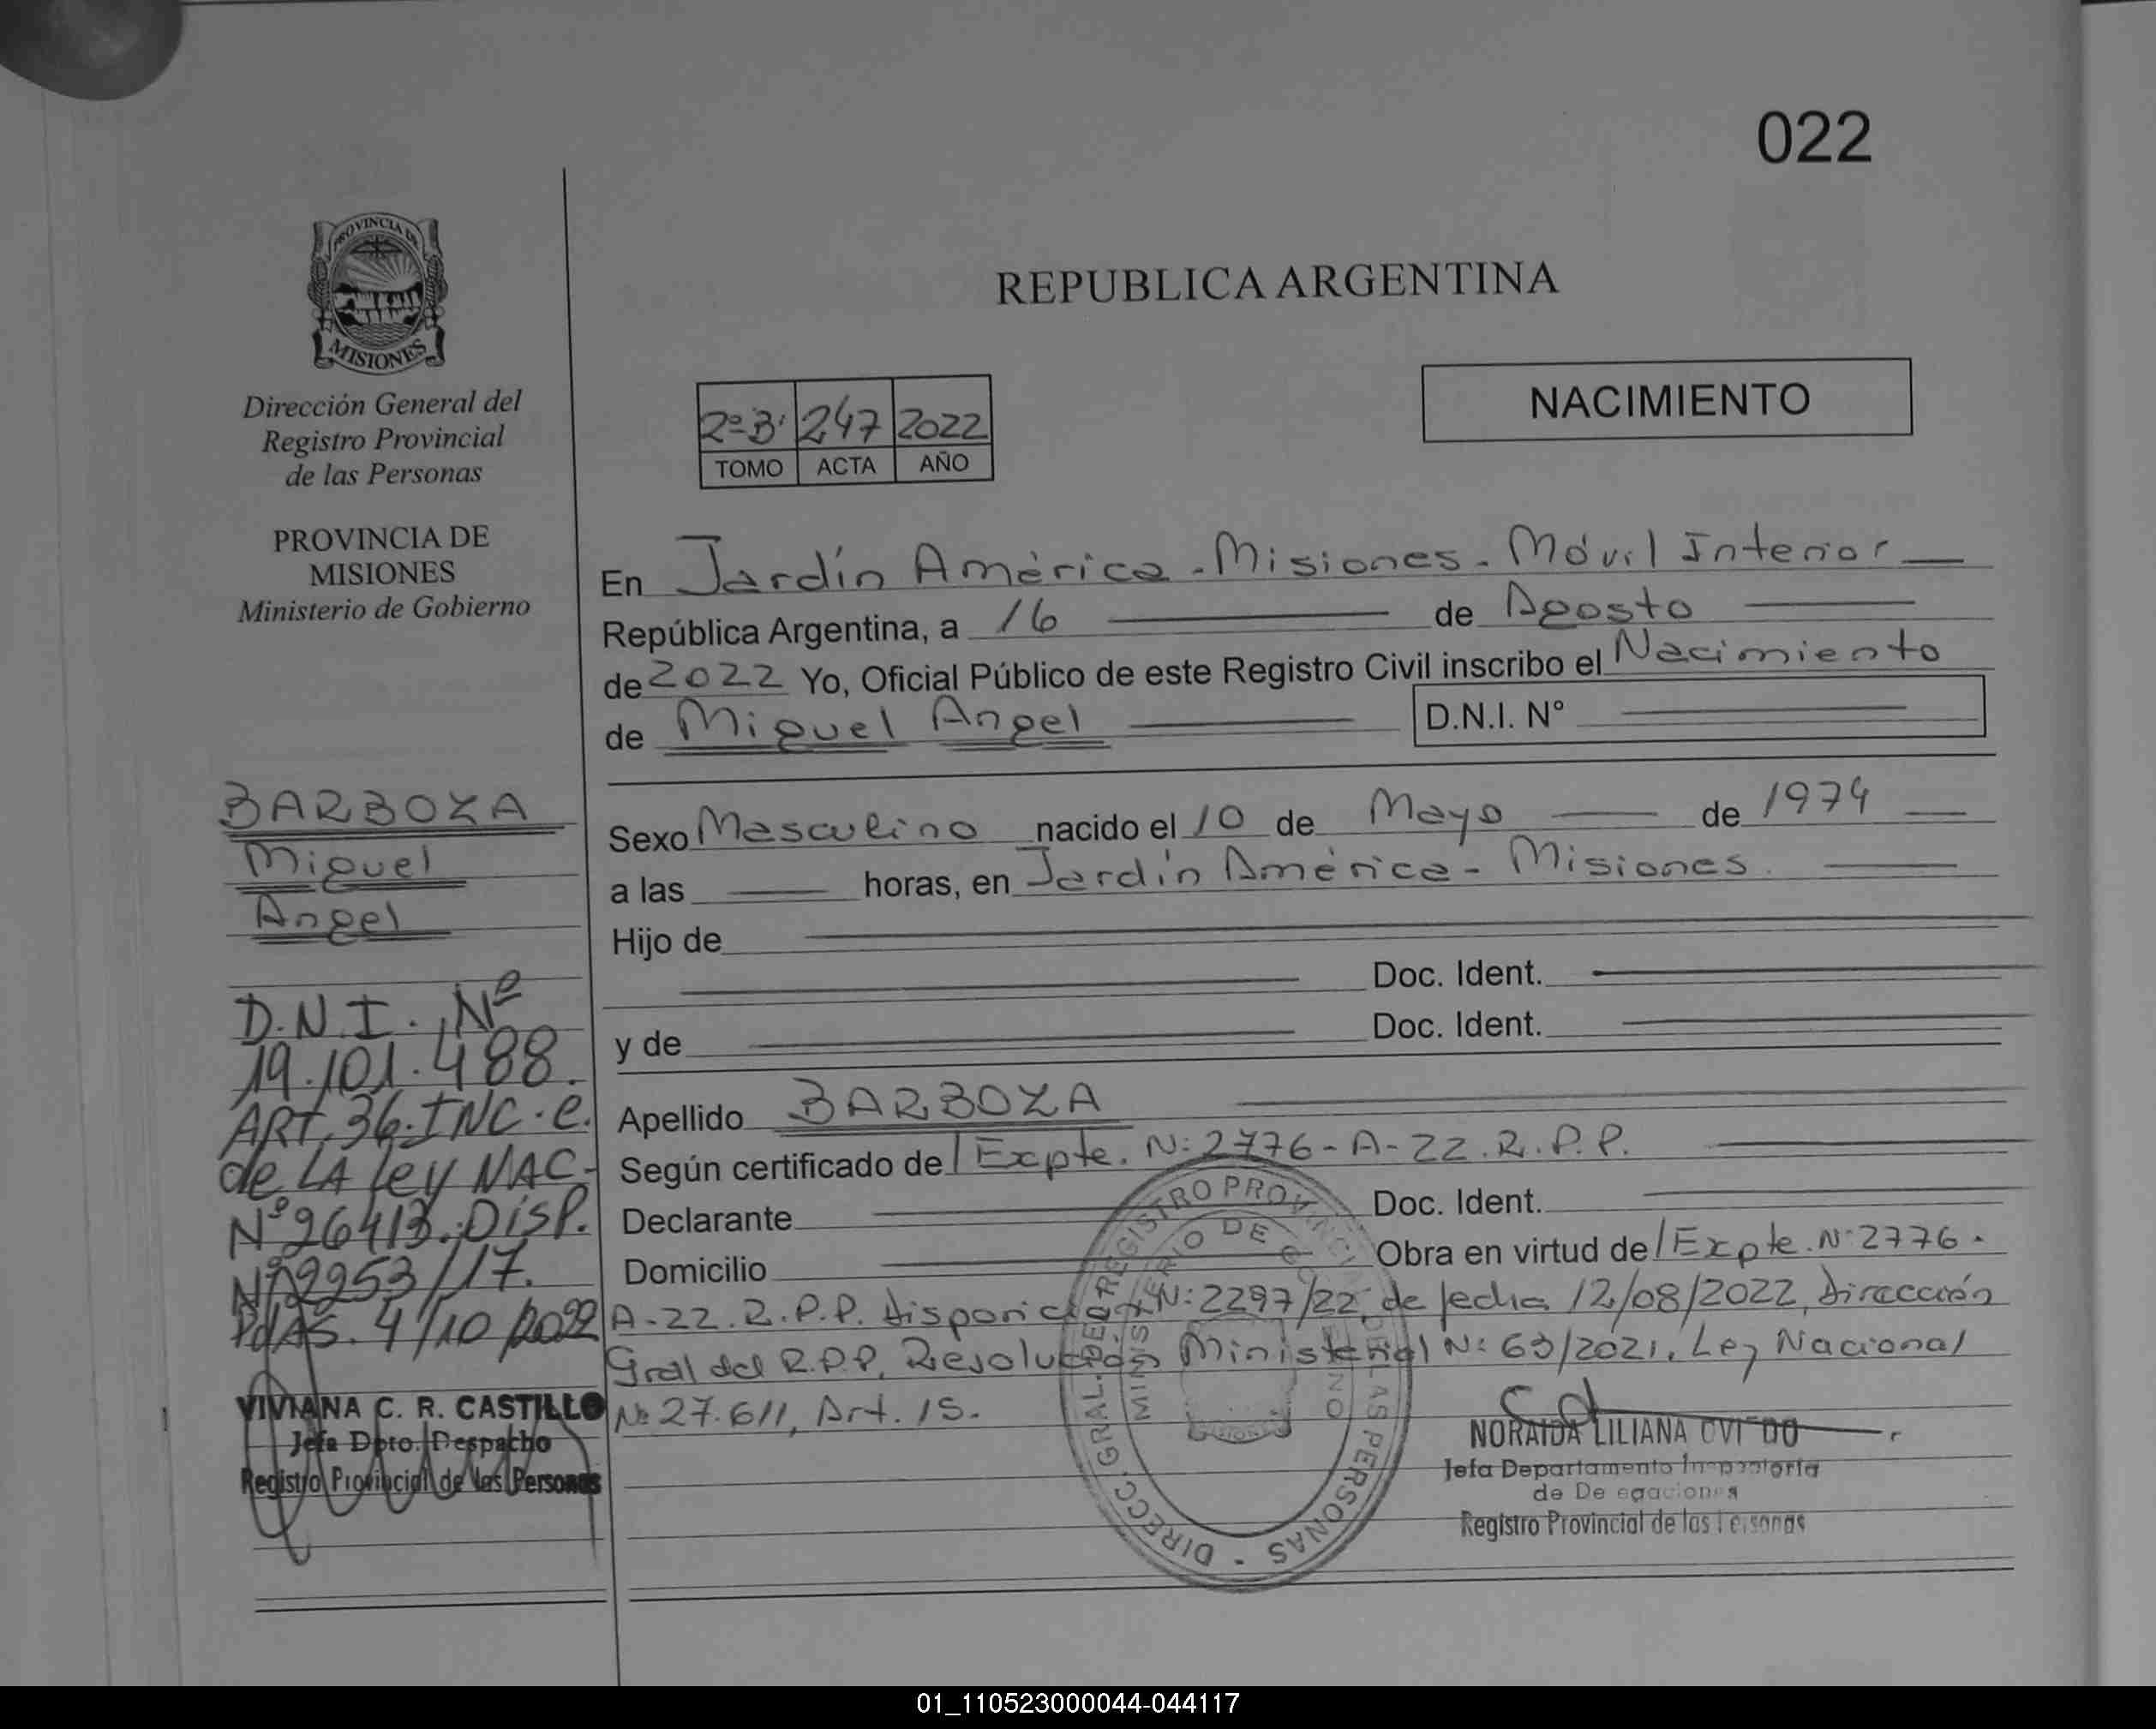 022
PROVINCIA DE
MISIONES
REPUBLICA ARGENTINA
Dirección General del
Registro Provincial
de las Personas
PROVINCIA DE
MISIONES
Ministerio de Gobierno
2º B' 247 2022
TOMO ACTA AÑO
NACIMIENTO
En Jardín América - Misiones - Móvil Interior
República Argentina, a 16 de Agosto
de 2022 Yo, Oficial Público de este Registro Civil inscribo el Nacimiento
de Miguel Angel D.N.I. N°
BARBOZA
Miguel
Angel
D.N.I. Nº
19.101.488.
ART. 36. INC. e.
de LA Ley NAC.
Nº 26413. DISP.
Nº 2953/17.
Pdas. 4/10/2022
VIVIANA C. R. CASTILLO
Jefa Dpto. Despacho
Registro Provincial de las Personas
Sexo Masculino nacido el 10 de Mayo de 1974
a las horas, en Jardín América - Misiones.
Hijo de
Doc. Ident.
y de Doc. Ident.
Apellido BARBOZA
Según certificado de / Expte. N: 2776-A-22. R.P.P.
Declarante Doc. Ident.
Domicilio Obra en virtud de / Expte. N: 2776.
A-22. R.P.P. Disposición N: 2297/22, de fecha 12/08/2022, Dirección
Gral del R.P.P, Resolución Ministerial N: 63/2021, Ley Nacional
Nº 27.611, Art. 15.
DIRECC. GRAL. DEL REGISTRO PROVINCIAL DE LAS PERSONAS
MINISTERIO DE GOBIERNO
NORAIDA LILIANA OVIEDO
Jefa Departamento Inspectoría
de Delegaciones
Registro Provincial de las Personas
01_110523000044-044117